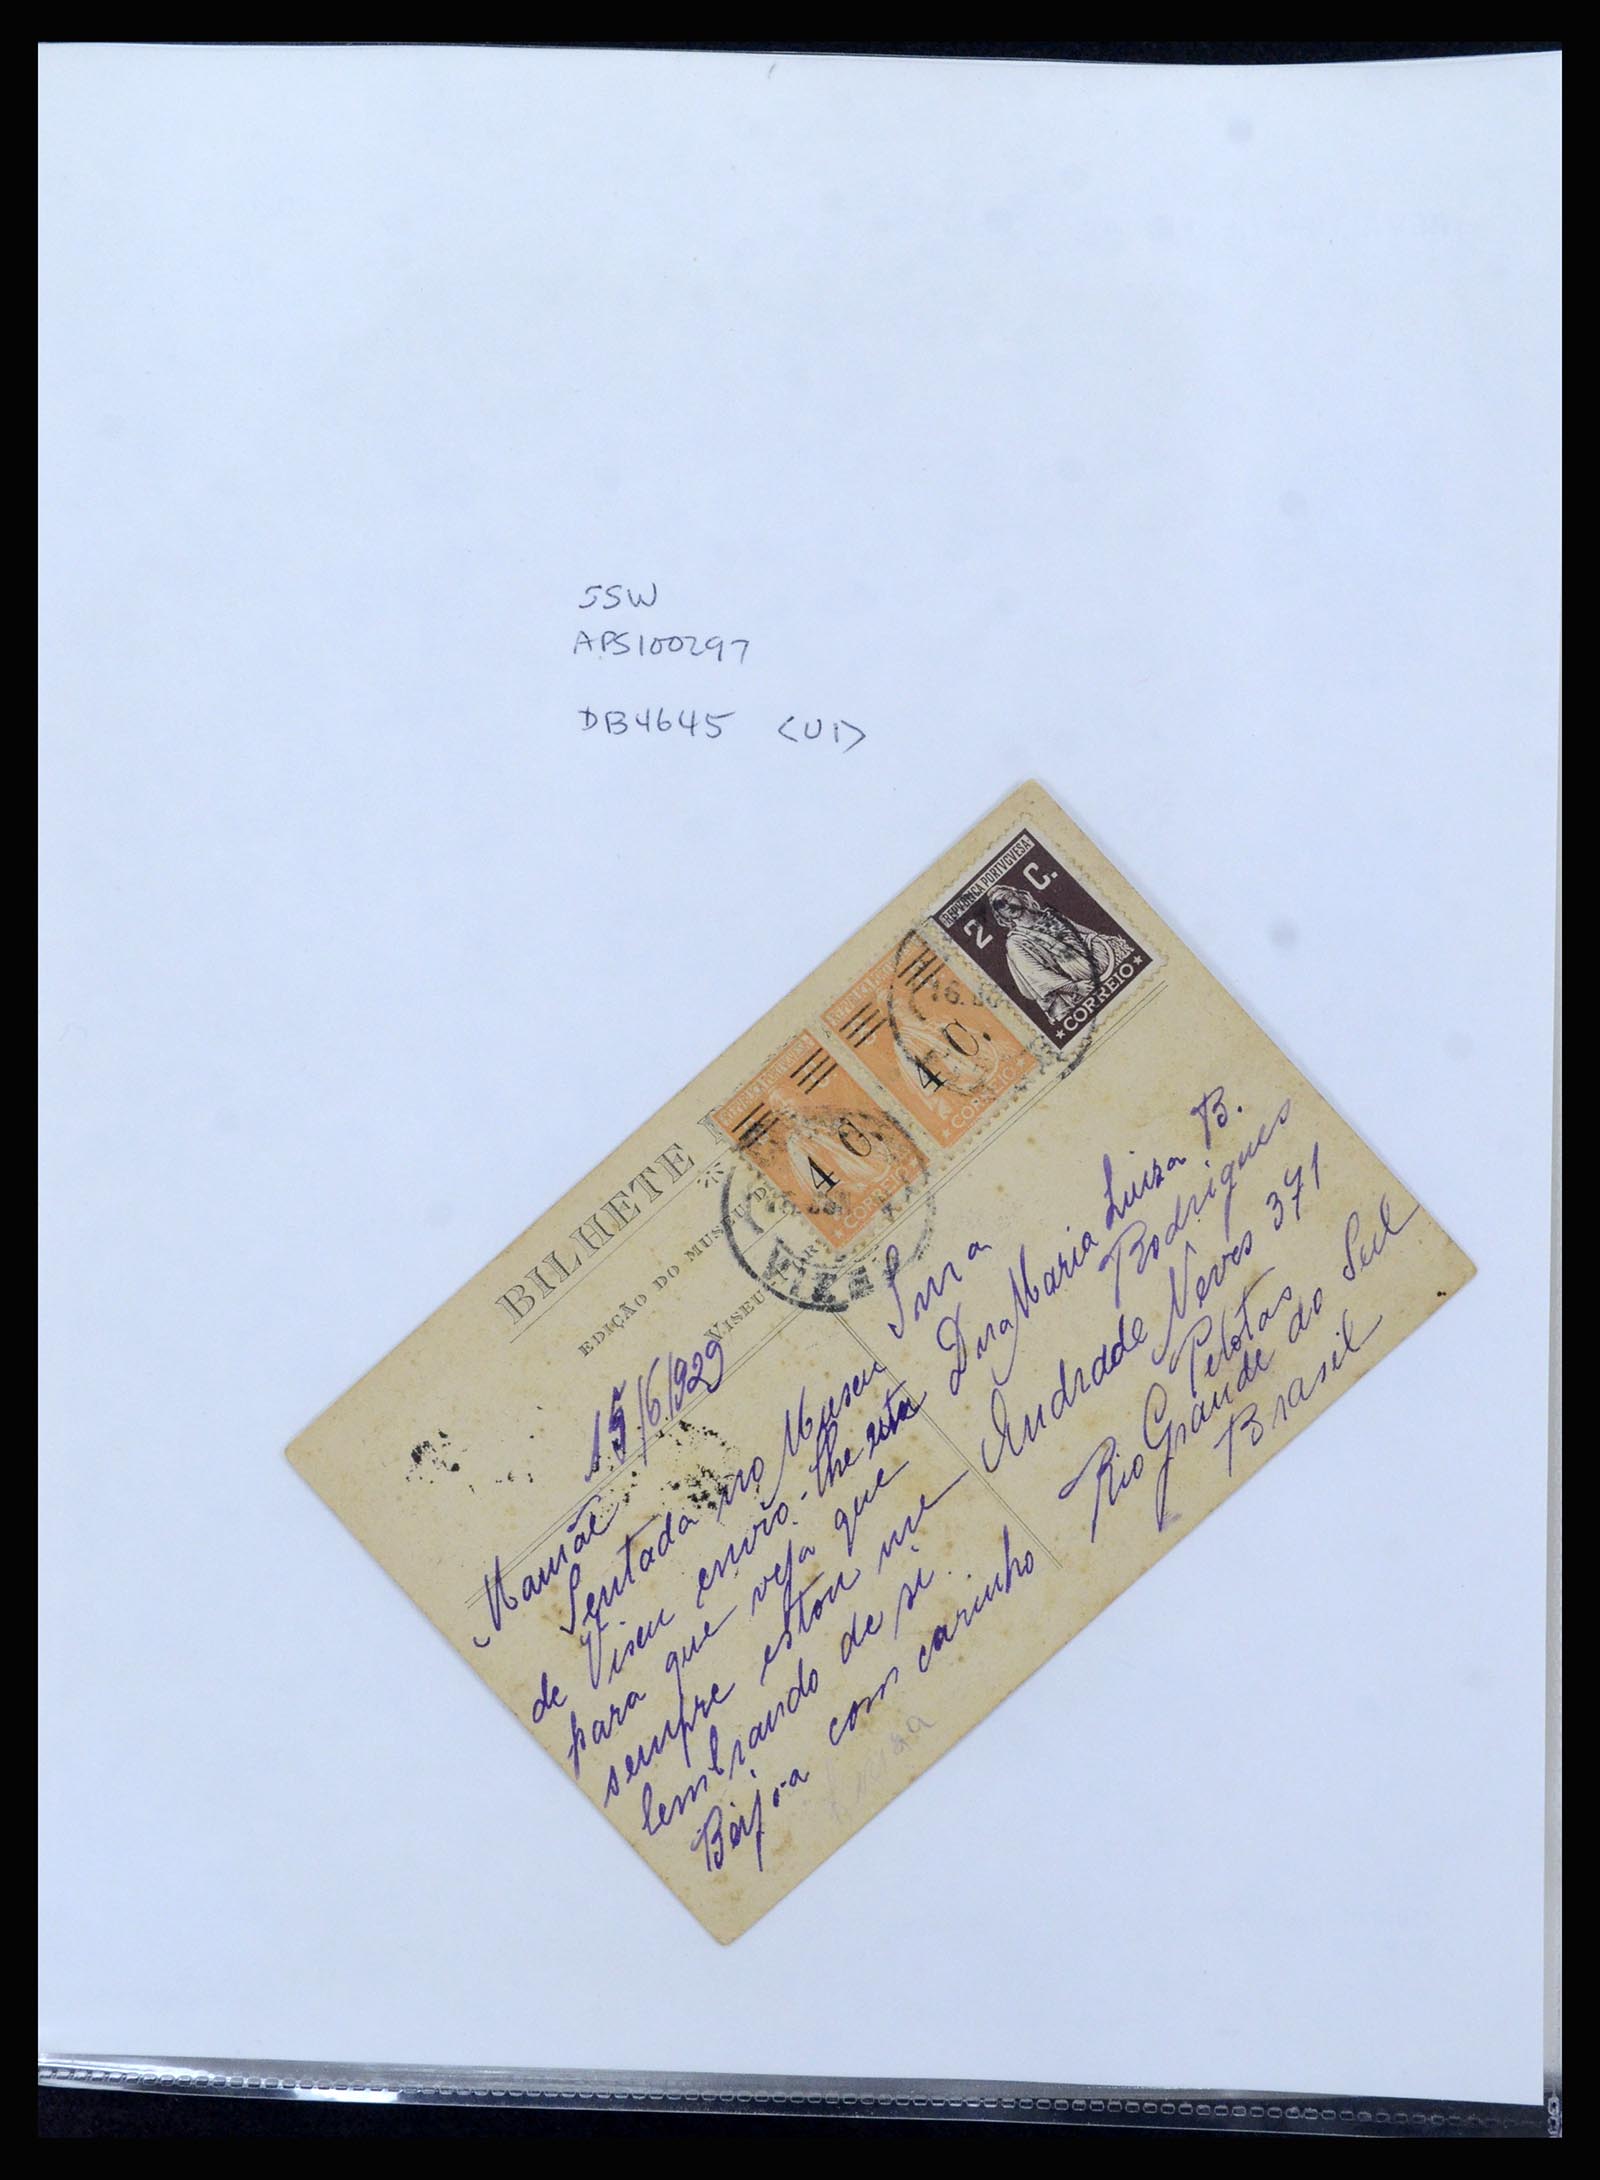 SSW
APS100297
DB4645 <U1>
REPVBLICA PORTVGVESA
2 C.
CORREIO
4 C.
CORREIO
4 C.
CORREIO
16. JUN
BILHETE
EDIÇÃO DO MUSEU D
VISEU
15/6/929
Mamãe
Sentada no Museu
de Viseu envio-lhe esta
para que veja que
sempre estou me
lembrando de si.
Beija com carinho
Luiza
Snra
Dna Maria Luiza B.
Rodrigues
Andrade Neves 371
Pelotas
Rio Grande do Sul
Brasil